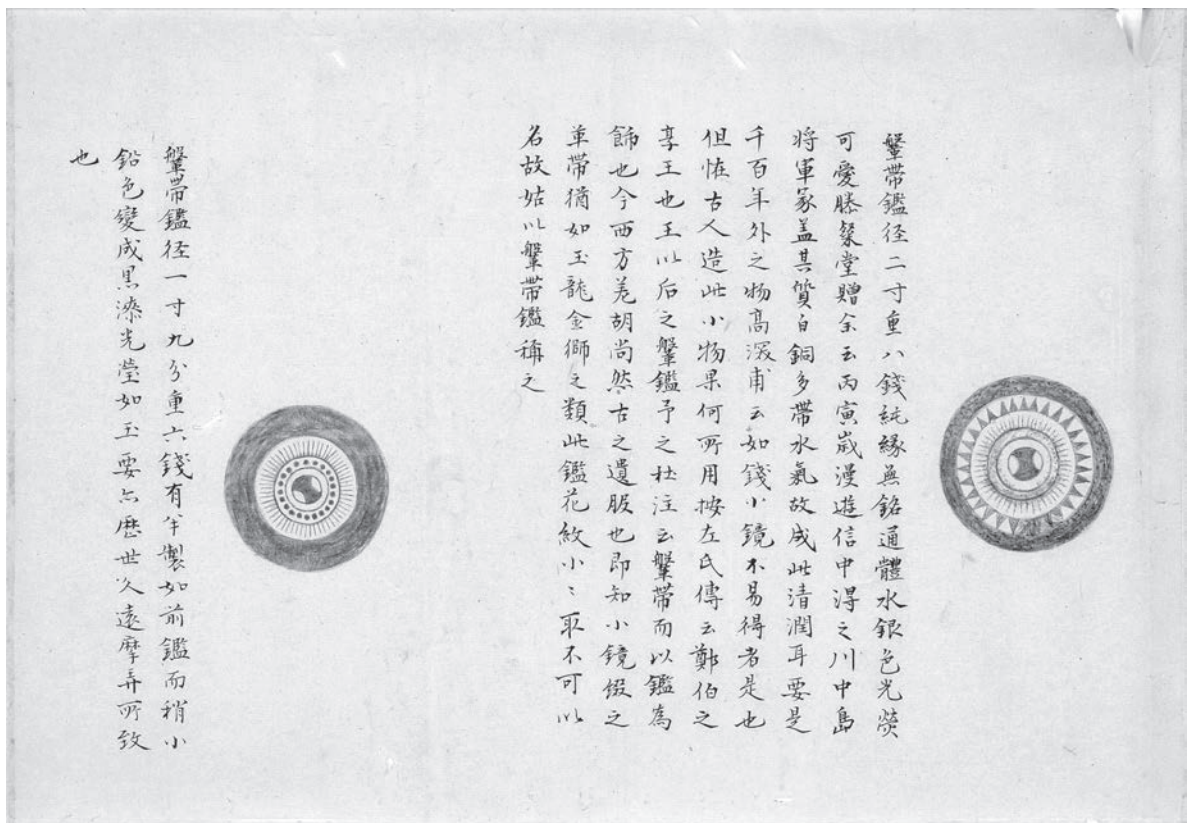 鞶帶鑑径二寸重八錢純緣無銘通體水銀色光熒
可愛滕粲堂贈余云丙寅歲漫遊信中得之川中島
将軍冢盖其質白銅多帶水氣故成此清潤耳要是
千百年外之物高深甫云如錢小鏡不易得者是也
但恠古人造此小物果何所用按左氏傳云鄭伯之
享王也王以后之鞶鑑予之杜注云鞶帶而以鑑為
飾也今西方羌胡尚然古之遺服也即知小鏡缀之
革帶猶如玉龍金獅之類此鑑花紋小〻取不可以
名故姑以鞶帶鑑稱之
鞶帶鑑径一寸九分重六錢有半製如前鑑而稍小
鉛色變成黒漆光瑩如玉要亦歴世久遠摩弄所致
也